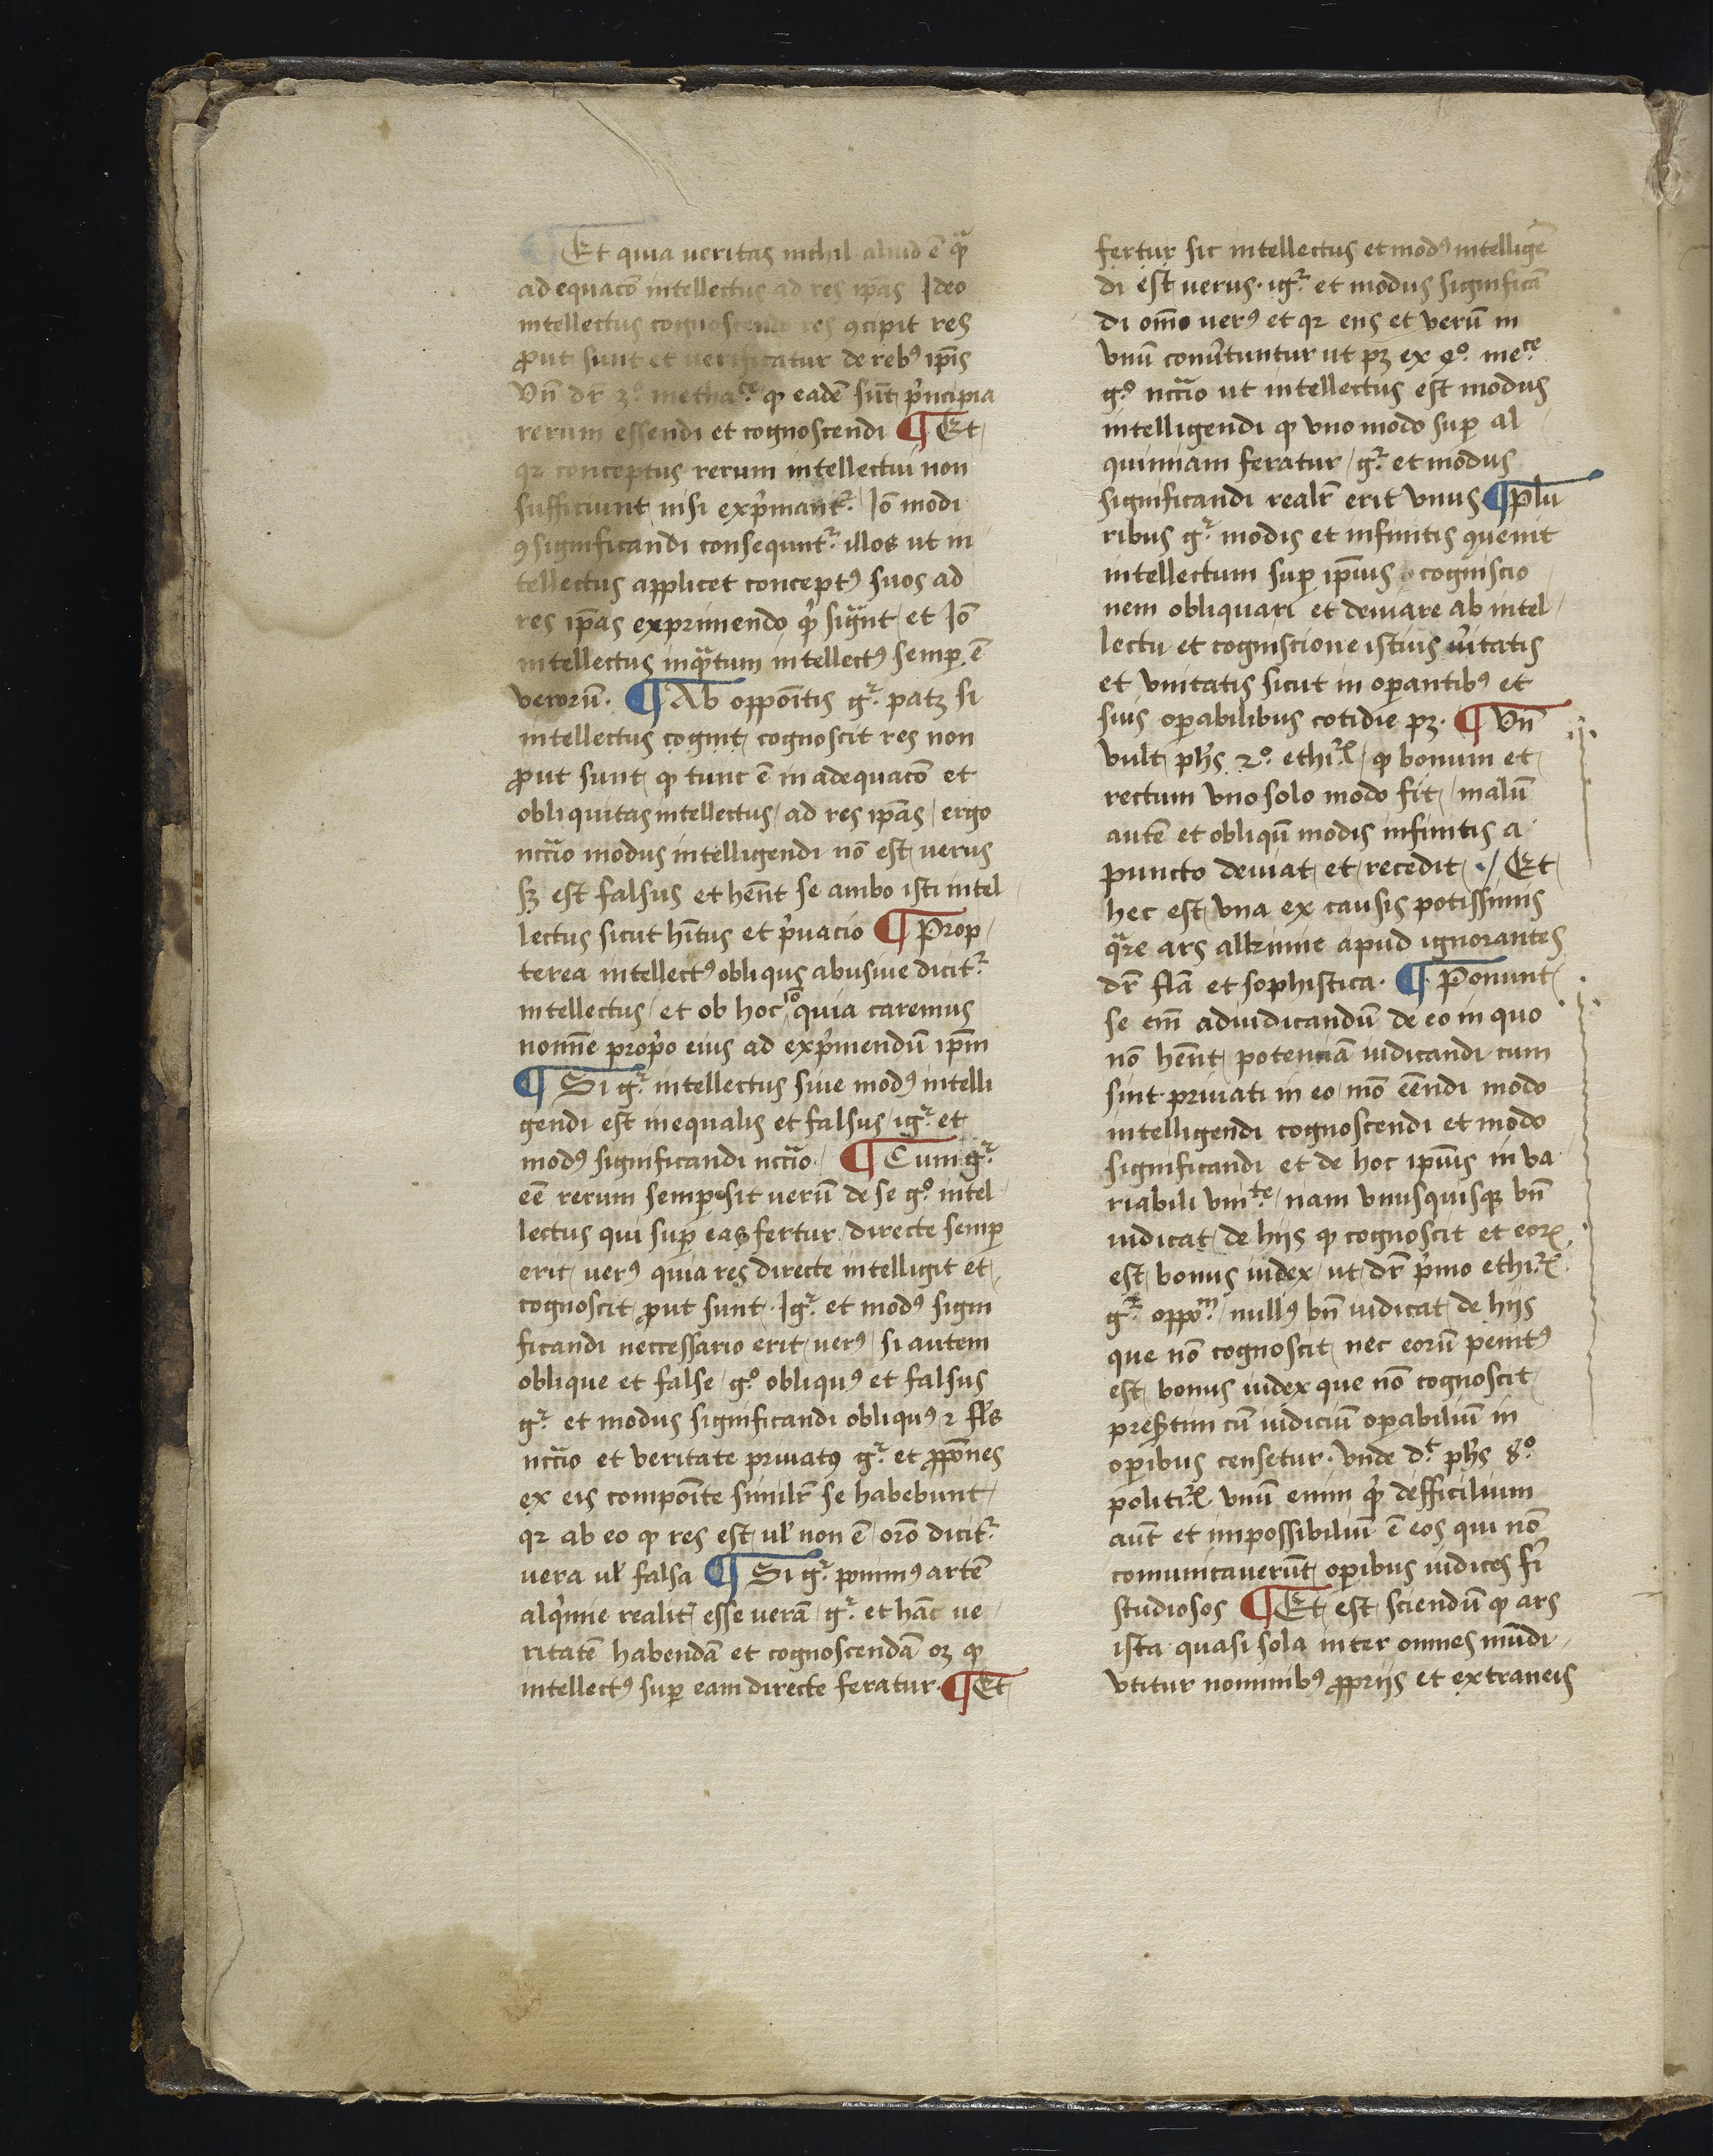 ¶ Et quia ueritas nichil aliud ē qᷓ
adequacō intellectus ad res ip̄as Ideo
intellectus cognoscendo res ꝯcipit res
ꝓut sunt et uerificatur de rebꝰ ip̄is
Vn̄ dr̄ 3º metha.ce ꝙ eadē sūt p̍ncipia
rerum essendi et cognoscendi ¶ Et
qꝛ conceptus rerum intellectui non
sufficiunt nisi exp̍mant᷑ Iō modi
ꝯsignificandi consequnt᷑ illos ut in
tellectus applicet conceptꝰ suos ad
res ip̄as exprimendo qd̍ signᷓt et Iō
intellectus inqᷓtum intellectꝰ semꝑ ē
verorū. ¶ Ab oppoītis g᷑ patꝫ si
intellectus cognit cognoscit res non
ꝓut sunt ꝙ tunc ē in adequacō et
obliquitas intellectus / ad res ip̄as / ergo
nccᷓio modus intelligendi nō est uerus
sꝫ est falsus et hēnt se ambo isti intel
lectus sicut hītus et p̍uacio ¶ Prop
terea intellectꝰ obliqus abusiue dicit᷑
intellectus / et ob hoc iō quia caremus
nomīe prop̍o eius ad exp̍mendū ip̄m
¶ Si g᷑ intellectus siue modꝰ intelli
gendi est inequalis et falsus / ig᷑ et
modꝰ significandi nccᷓio. ¶ Cum g᷑
eē rerum semꝑ sit uerū de se gº intel
lectus qui suꝑ eas fertur / directe semꝑ
erit uerꝰ quia res directe intelligit et
cognoscit ꝓut sunt. Ig᷑ et modꝰ signi
ficandi neccessario erit uerꝰ / si autem
oblique et false / gº obliquꝰ et falsus
g᷑ et modus significandi obliquꝰ ⁊ fl̍s
nccᷓio et veritate priuatꝰ g᷑ et ꝓpōnes
ex eis compoīte similr̄ se habebunt
qꝛ ab eo ꝙ res est ul̍ non ē / orō dicit᷑
uera ul̍ falsa ¶ Si g᷑ ponimꝰ artē
alq̍mie realit᷑ esse uerā / g᷑ et hāc ue
ritatē habendā et cognoscendā oꝫ ꝙ
intellectꝰ suꝑ eam directe feratur. ¶ Et
fertur sic intellectus et modꝰ intelligē
di est uerus. ig᷑ et modus significā
di om̄o uerꝰ et qꝛ ens et verū in
vnū conu̍tuntur ut pꝫ ex 4º me.ce
gº nccᷓio ut intellectus est modus
intelligendi ꝙ vno modo suꝑ al
quimiam feratur / g᷑ et modus
significandi realr̄ erit vnus ¶ Plu
ribus g᷑ modis et infinitis ꝯuenit
intellectum suꝑ ip̄ius cogniscio
nem obliquari et deuiare ab intel
lectu et cogniscione istius u̍itatis
et vnitatis sicut in oꝑantibꝰ et
suis oꝑabilibus cotidie pꝫ. ¶ Vn̄
vult ph̍s 2º ethi᷑ꝝ / ꝙ bonum et
rectum vno solo modo fit / malū
autē et obliqū modis infinitis a
puncto deuiat et recedit ./ Et
hec est vna ex causis potissimis
qᷓre ars alkimie apud ignorantes
dr̄ flā et sophistica. ¶ Ponunt
se em̄ adiudicandū de eo in quo
nō hēnt potenciā iudicandi cum
sint priuati in eo / mō eēndi modo
intelligendi cognoscendi et modo
significandi et de hoc ip̄ius in va
riabili vni.te / nam vnusquisqꝫ bn̄
iudicat / de hijs ꝙ cognoscit et eoꝝ
est bonus iudex / ut dr̄ p̍mo ethi᷑ꝝ
g᷑ oppo.m / nullꝰ bn̄ iudicat de hijs
que nō cognoscit nec eorū penitꝰ
est bonus iudex que nō cognoscit
presertim cū iudiciū oꝑabiliū in
oꝑibus censetur. Vnde d.t ph̍s 8º
politi᷑ꝝ vnū enim qd̍ defficilium
aūt et impossibiliū ē eos qui nō
comunicauerūt oꝑibus iudices fi̍
studiosos ¶ Et est sciendū ꝙ ars
ista quasi sola inter omnes mūdi
vtitur nominibꝰ ꝓprijs et extraneis